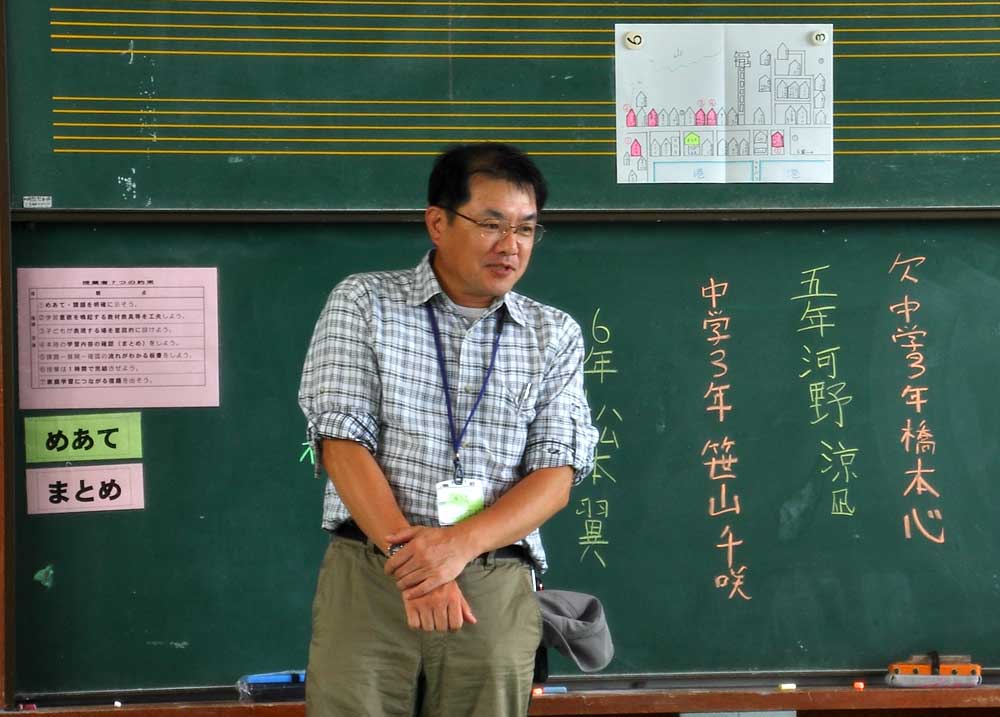 欠 中学3年橋本心
五年河野 涼凪
中学3年 笹山千咲
6年 松本翼
6
3
山
港
港
授業者7つの約束
観点
①めあて・課題を明確に示そう。
②学習意欲を喚起する教材教具等を工夫しよう。
③子どもが表現する場を意図的に設けよう。
④本時の学習内容の確認（まとめ）をしよう。
⑤課題－展開－確認の流れがわかる板書をしよう。
⑥授業は1時間で完結させよう。
⑦家庭学習につながる宿題を出そう。
めあて
まとめ